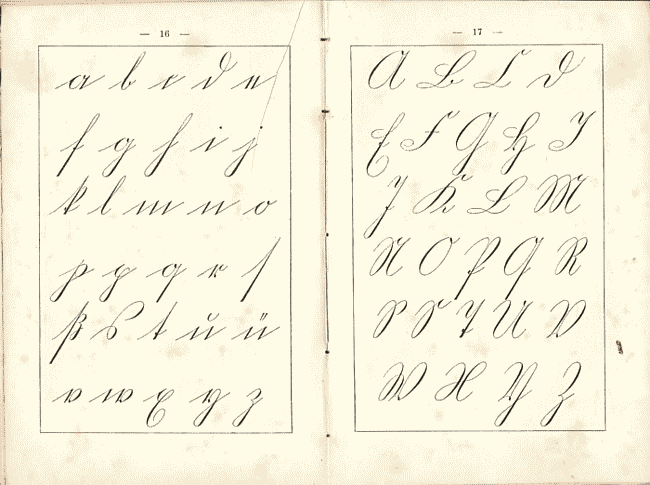 — 16 —
a b c d e
f g h i j
k l m n o
p p q r ſ
ß s t u ü
v w x y z
— 17 —
A B C D
E F G H I
J K L M
N O P Q R
S S T U V
W X Y Z